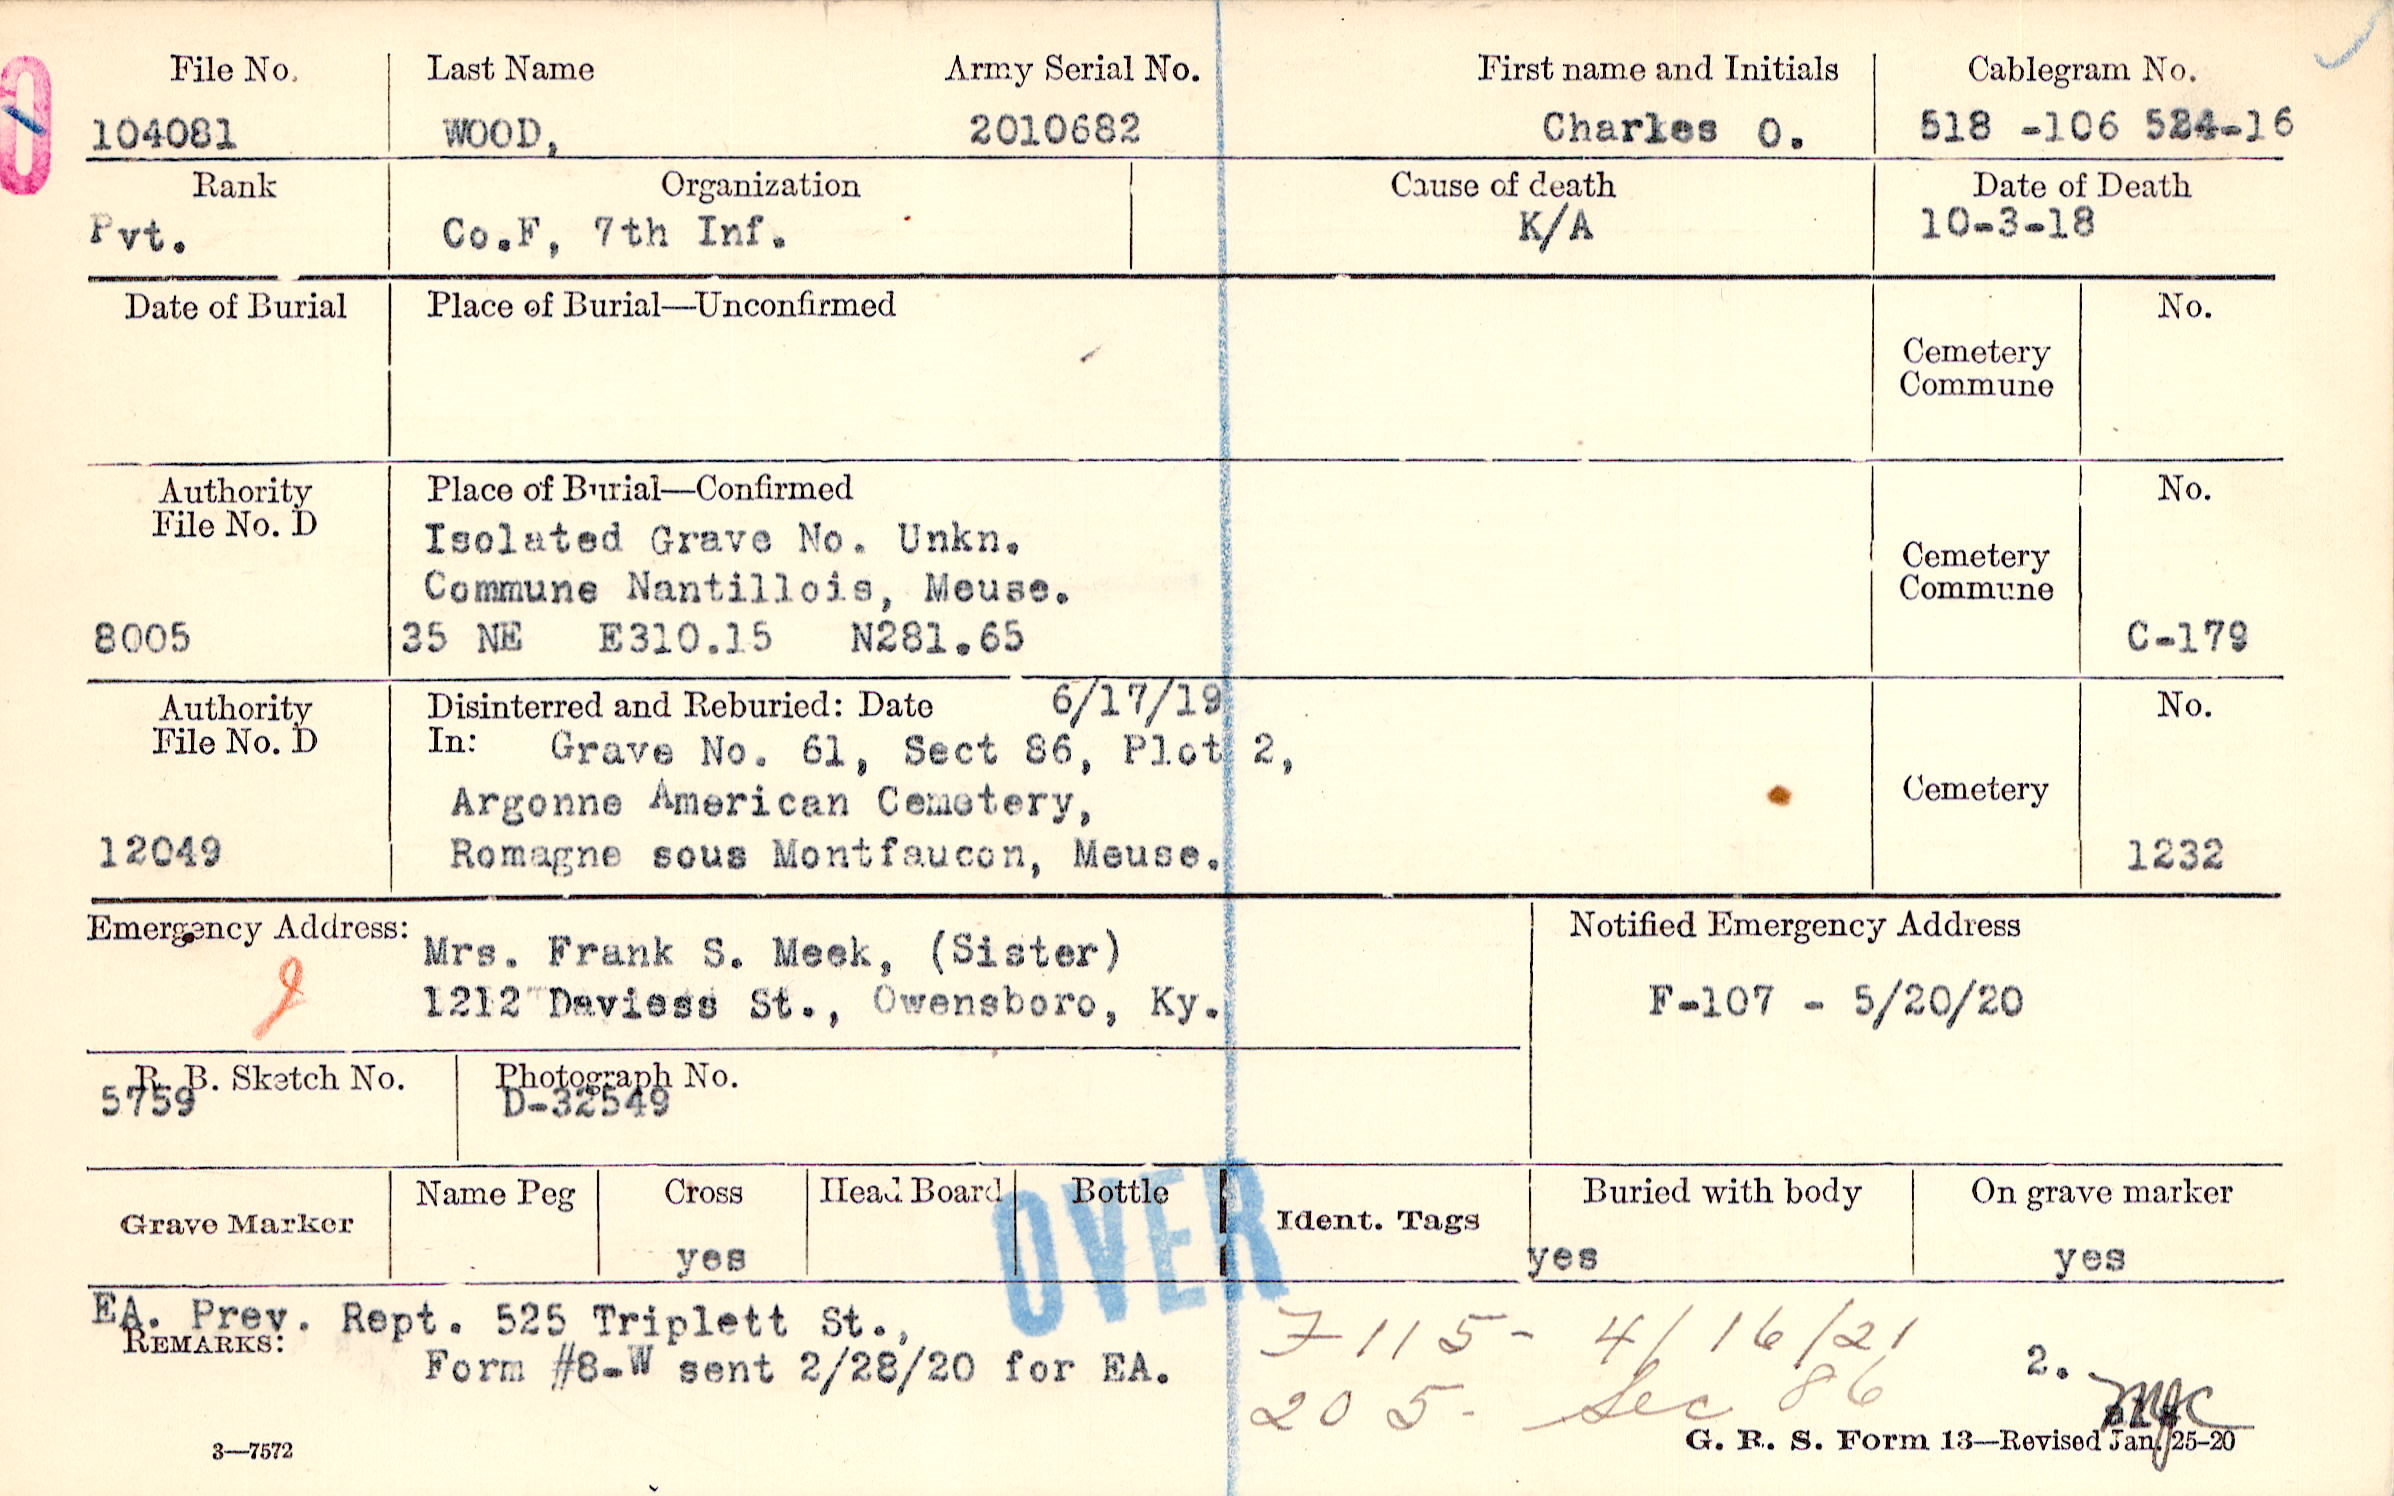 File No. Last Name Army Serial No. First name and Initials Cablegram No.
104081 WOOD, 2010682 Charles O. 518 -106 524-16
Rank Organization Cause of death Date of Death
Pvt. Co.F, 7th Inf. K/A 10-3-18
Date of Burial Place of Burial—Unconfirmed No.
Cemetery
Commune
Authority Place of Burial—Confirmed No.
File No. D
Isolated Grave No. Unkn.
Cemetery
Commune Nantillois, Meuse. Commune
8005 35 NE E310.15 N281.65 C-179
Authority Disinterred and Reburied: Date 6/17/19 No.
File No. D In: Grave No. 61, Sect 86, Plot 2,
Argonne American Cemetery, Cemetery
12049 Romagne sous Montfaucon, Meuse. 1232
Emergency Address: Notified Emergency Address
Mrs. Frank S. Meek, (Sister)
1212 Daviess St., Owensboro, Ky. F-107 - 5/20/20
R. B. Sketch No. Photograph No.
5759 D-32549
Grave Marker Name Peg Cross Head Board Bottle Ident. Tags Buried with body On grave marker
yes yes yes
OVER
EA. Prev. Rept. 525 Triplett St.,
REMARKS:
Form #8-W sent 2/28/20 for EA.
7115- 4/16/21
2.
205- Sec 86
3—7572 G. R. S. Form 13—Revised Jan. 25-20